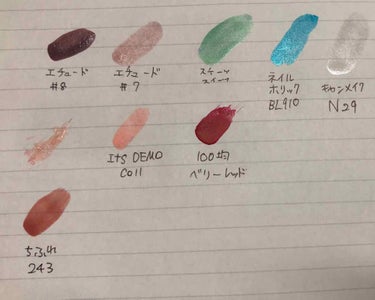 エチュード
#8
エチュード
#7
スチーツ
スイーツ
ネイル
ホリック
BL910
キャンメイク
N29
ItS DEMO
CO11
100均
ベリーレッド
ちふれ
243